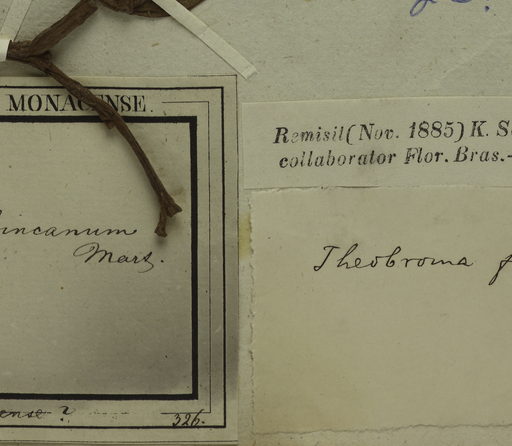 MONACENSE.
incanum
Mart.
ense?
326.
Remisit (Nov. 1885) K. S
collaborator Flor. Bras.—
Theobroma